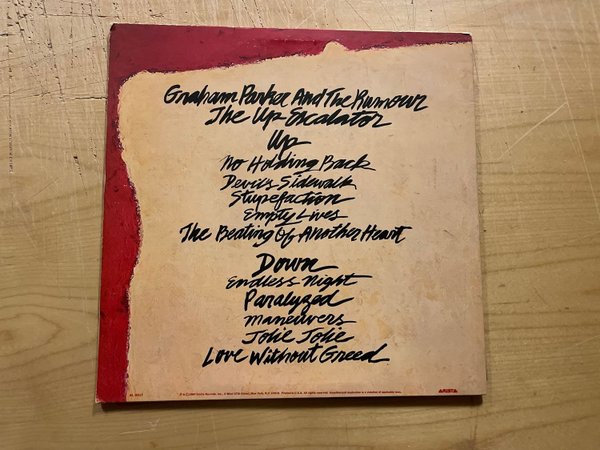 Graham Parker And The Rumour
The Up Escalator
Up
No Holding Back
Devils Sidewalk
Stupefaction
Empty Lives
The Beating Of Another Heart
Down
Endless Night
Paralyzed
Maneuvers
Jolie Jolie
Love Without Greed
ARISTA